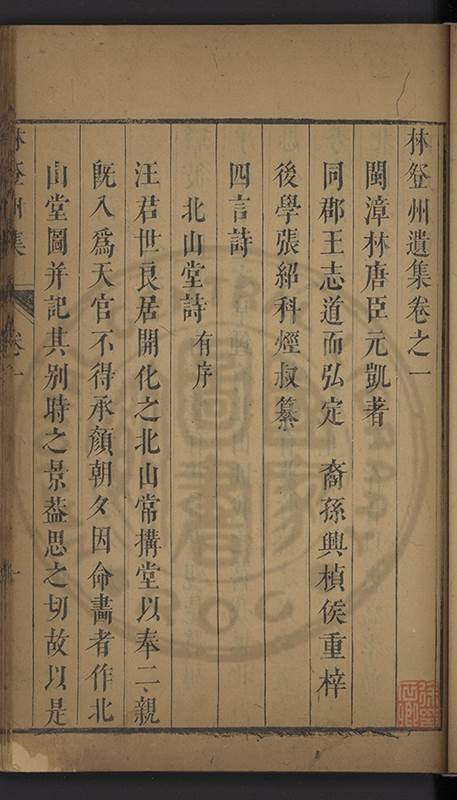 林登州遺集卷之一
閩漳林唐臣元凱著
同郡王志道而弘定　裔孫興楨侯重梓
後學張紹科煙叔纂
四言詩
北山堂詩有序
汪君世良居開化之北山常搆堂以奉二親
既入爲天官不得承顏朝夕因命畵者作北
山堂圖并記其别時之景葢思之切故以是
林登州集　卷一　一